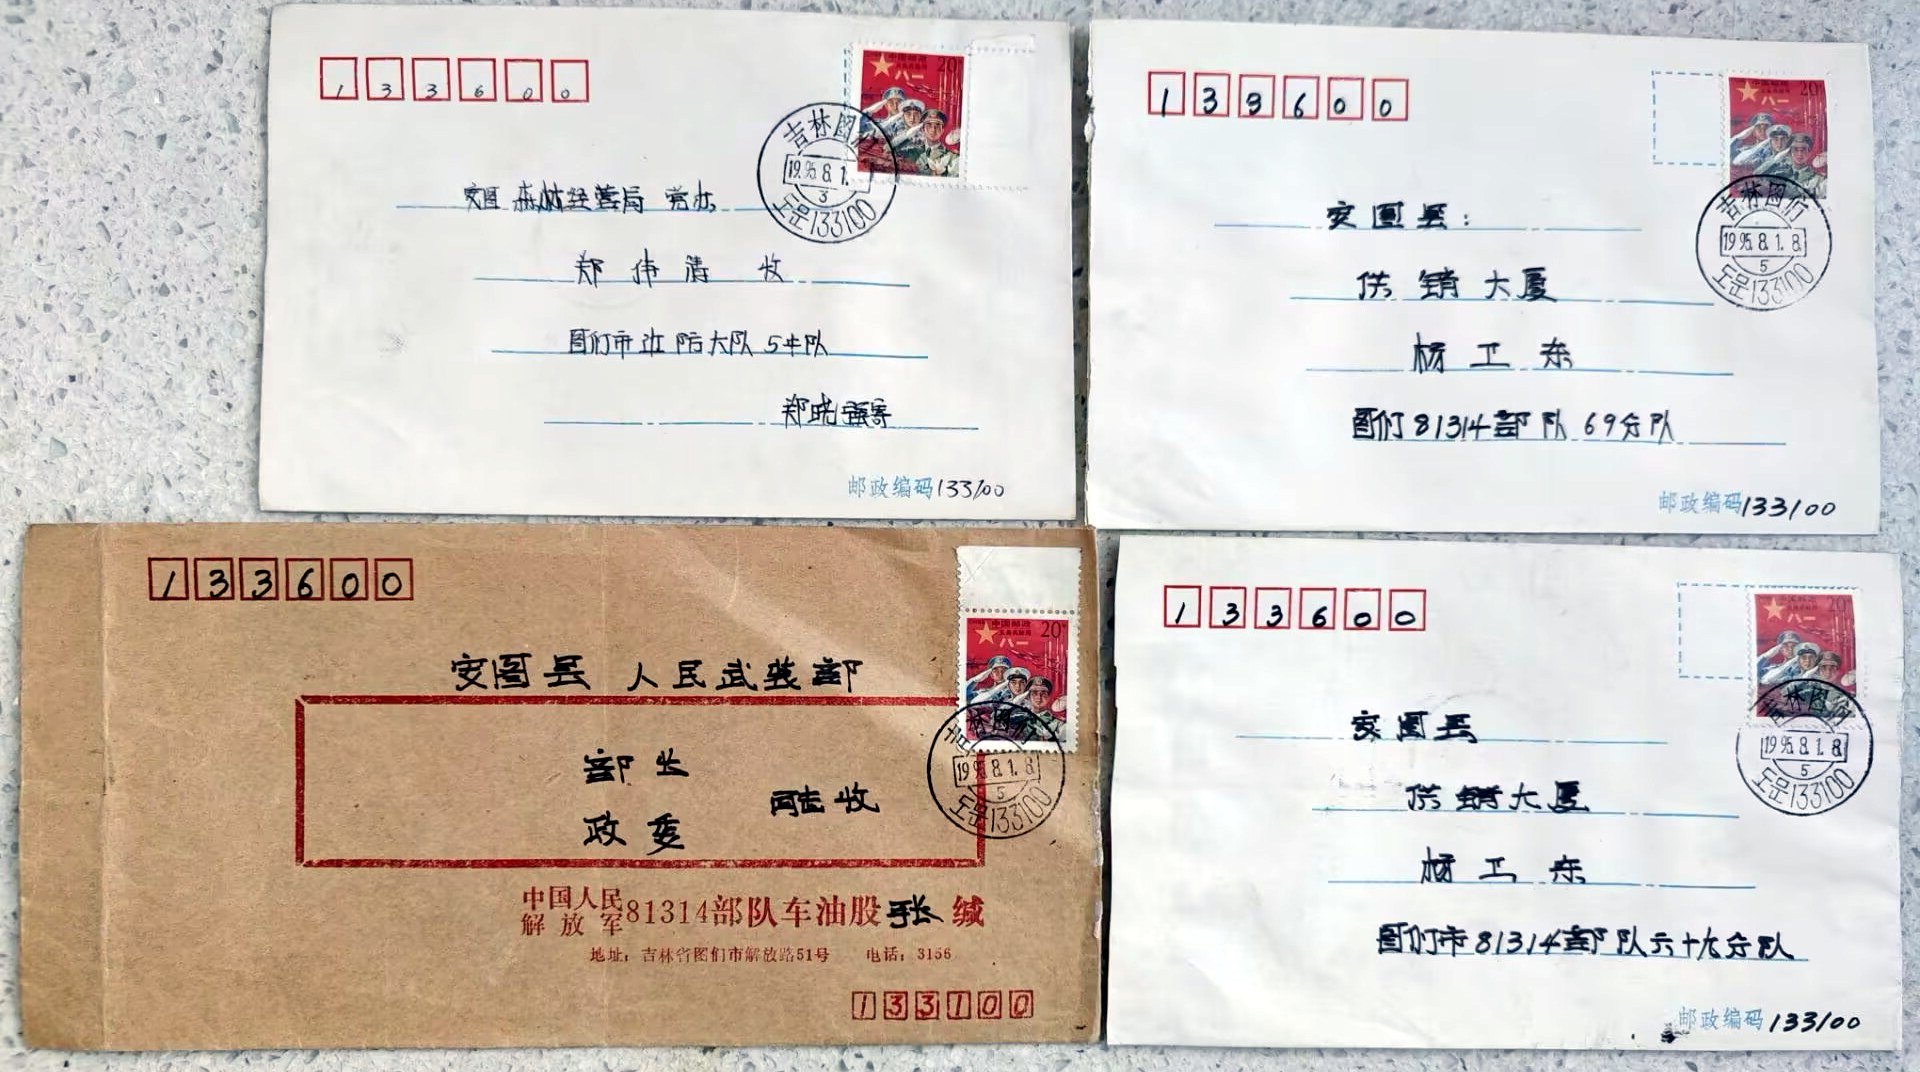 133600
20
八一
吉林图们
1995.8.1.
3
도문133100
安图 森林经营局 党办
郑 伟 清 收
图们市边防大队5中队
郑晓强寄
邮政编码133100
139600
20
八一
吉林图们
1995.8.1.8
5
도문133100
安图县：
供销大厦
杨卫东
图们81314部队69分队
邮政编码133100
133600
中国邮政
20
八一
吉林图们
1995.8.1.8
5
도문133100
安图县 人民武装部
部长
政委
同志收
中国人民
解放军
81314部队车油股张 缄
地址：吉林省图们市解放路51号 电话：3156
133100
133600
20
八一
吉林图们
1995.8.1.8
5
도문133100
安图县
供销大厦
杨卫东
图们市81314部队六十九分队
邮政编码133100